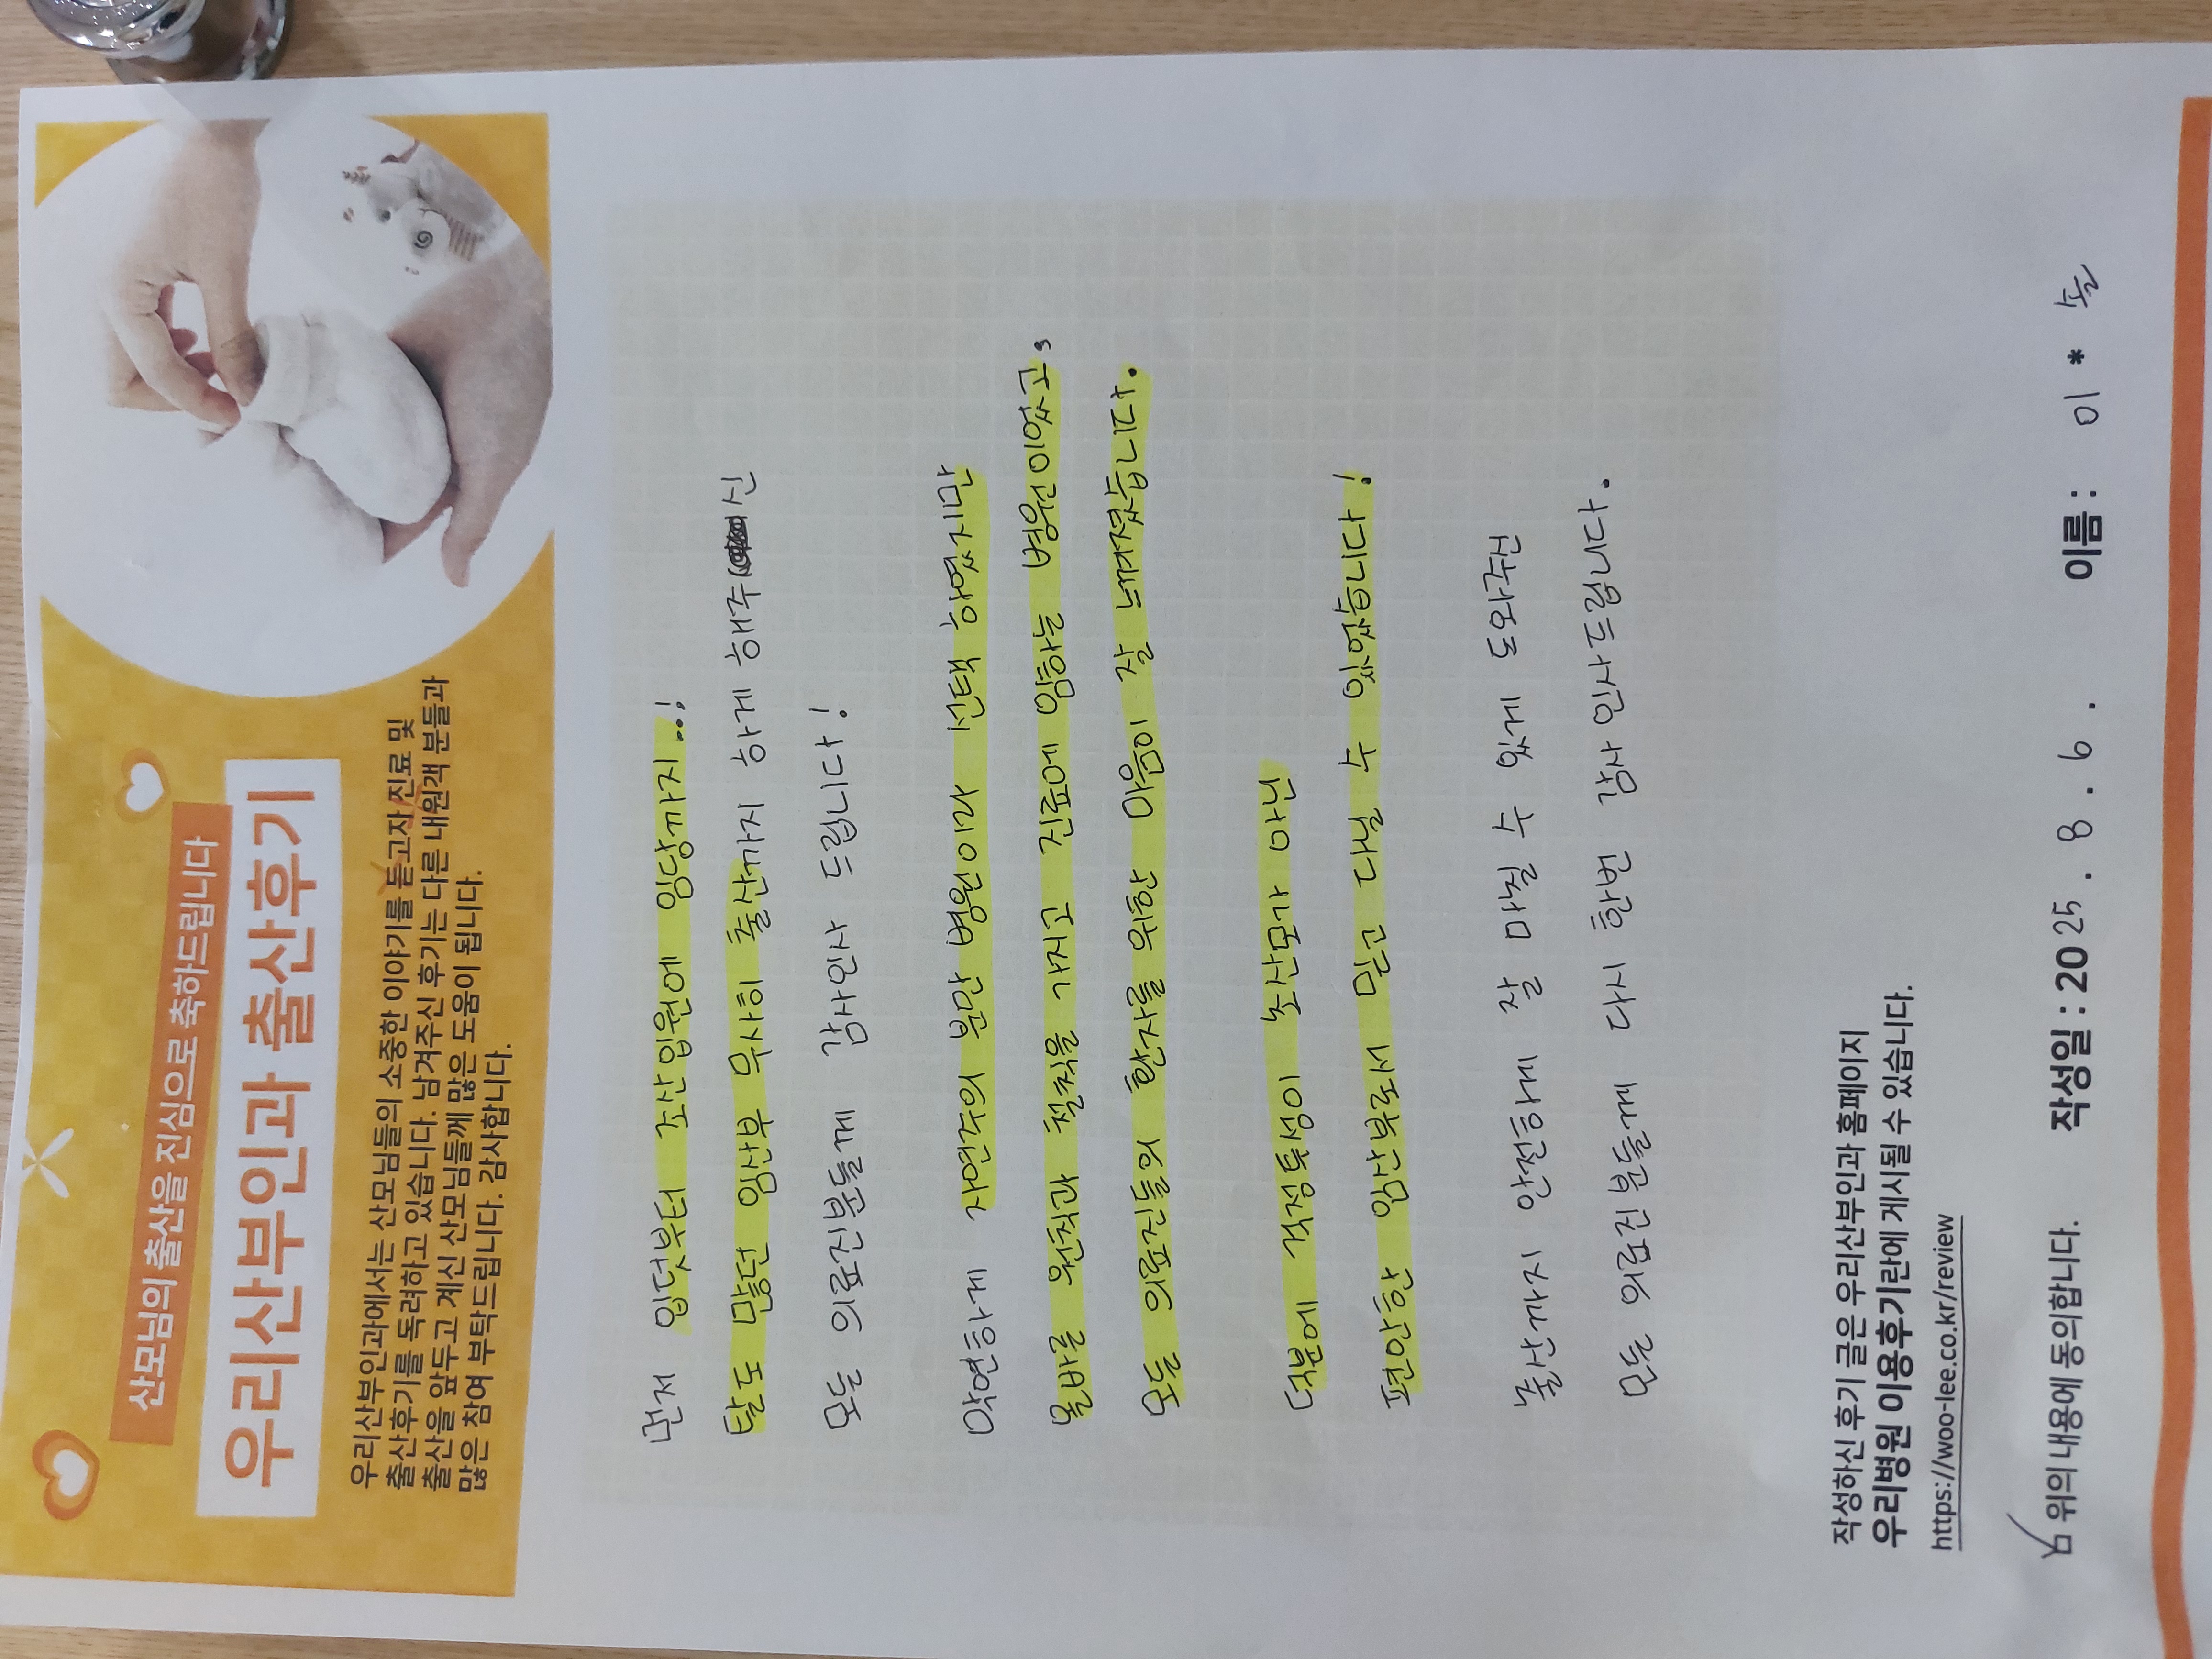 산모님의 출산을 진심으로 축하드립니다
우리산부인과 출산후기
우리산부인과에서는 산모님들의 소중한 이야기를 듣고자 진료 및
출산후기를 독려하고 있습니다. 남겨주신 후기는 다른 내원객 분들과
출산을 앞두고 계신 산모님들께 많은 도움이 됩니다.
많은 참여 부탁드립니다. 감사합니다.
먼저 입덧부터 조산입원에 임당까지..!
탈도 많던 임산부 무사히 출산까지 하게 해주신
모든 의료진분들께 감사인사 드립니다!
막연하게 자연주의 분만 병원이라 선택 하였지만
올바른 원칙과 철칙을 가지고 진료에 임하는 병원이었고,
모든 의료진들의 환자를 위한 마음이 잘 느껴졌습니다.
덕분에 걱정투성이 노산모가 아닌
편안한 임산부로서 믿고 다닐 수 있었습니다!
출산까지 안전하게 잘 마칠 수 있게 도와주신
모든 의료진분들께 다시 한번 감사인사드립니다.
작성하신 후기 글은 우리산부인과 홈페이지
우리병원 이용후기란에 게시될 수 있습니다.
https://woo-lee.co.kr/review
위의 내용에 동의합니다. 작성일 : 2025. 8. 6. 이름 : 이 * 솔